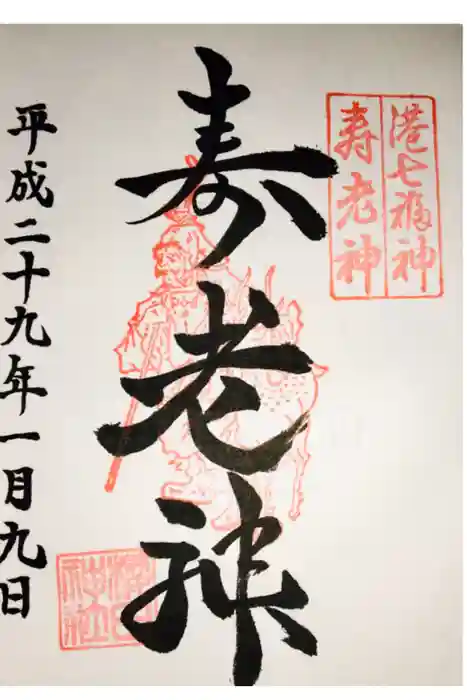 港七福神
寿老神
寿老神
平成二十九年一月九日
櫻田
神社